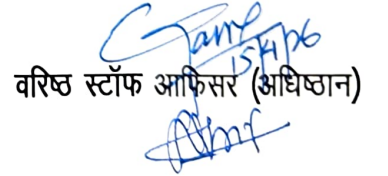 15/4/26
वरिष्ठ स्टॉफ आफिसर (अधिष्ठान)